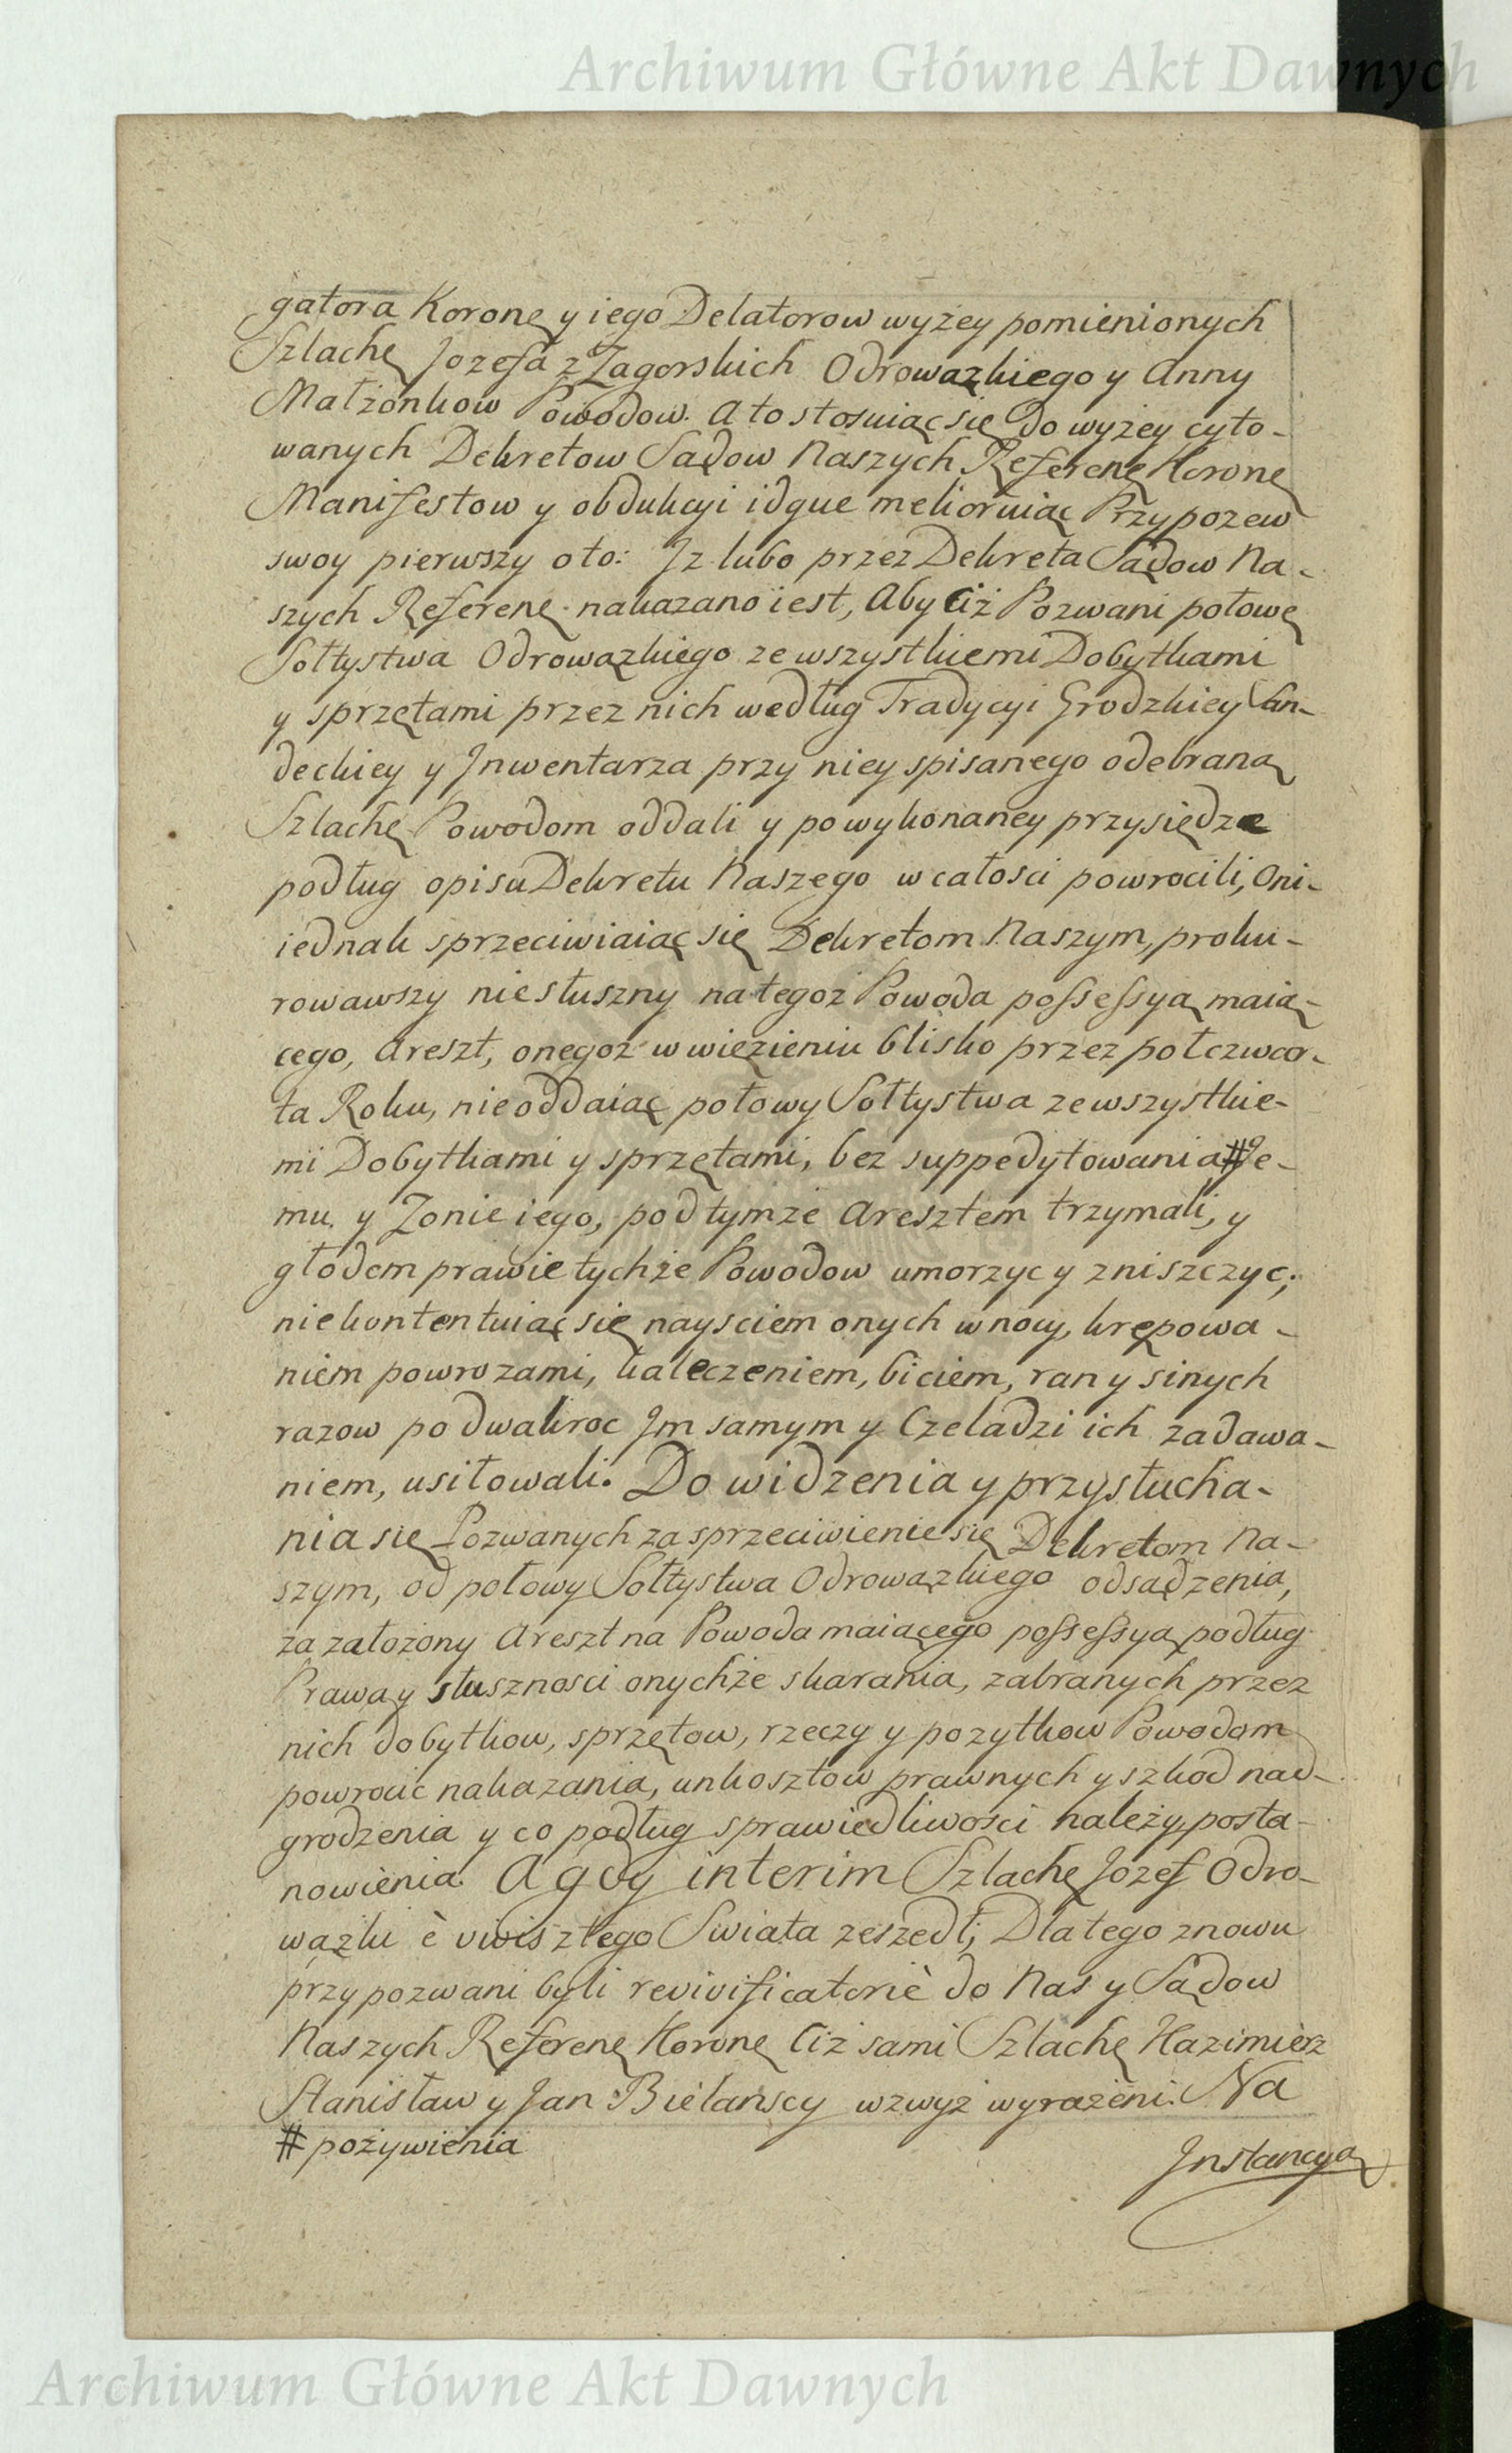 Archiwum Główne Akt Dawnych
gatora Koronę y iego Delatorow wyżey pomienionych
Szlachę Jozefa z Zagorskich Odrowązkiego y Anny
Małżonkow Powodow. A to stosuiąc się do wyżey cyto-
wanych Dekretow Sądow Naszych Referenę Koronę
Manifestow y obdukcyi idque melioruiąc Przypozew
swoy pierwszy oto: Iz lubo przez Dekreta Sądow Na-
szych Referenę nakazano iest, Aby Ciż Pozwani połowę
Sołtystwa Odrowązkiego ze wszystkiemi Dobytkami
y sprzętami przez nich według Tradycyi Grodzkiey San-
deckiey y Inwentarza przy niey spisanego odebraną
Szlachę Powodom oddali y po wykonaney przysiędze
podług opisu Dekretu Naszego w całosci powrocili, Oni-
iednak sprzeciwiaiąc się Dekretom Naszym, proku-
rowawszy niesłuszny na tegoż Powoda possessyą maią-
cego, Areszt, onegoz w więzieniu blisko przez poł czwor-
ta Roku, nieoddaiąc połowy Sołtystwa ze wszystkie-
mi Dobytkami y sprzętami, bez suppedytowania # Je-
mu y Zonie iego, pod tymże Aresztem trzymali, y
głodem prawie tychże Powodow umorzyc y zniszczyc;
niekontentuiąc się nayściem onych w nocy, krępowa-
niem powrozami, kaleczeniem, biciem, ran y sinych
razow po dwakroc Im samym y Czeladzi ich zadawa-
niem, usiłowali. Do widzenia y przysłucha-
nia się Pozwanych za sprzeciwienie się Dekretom Na-
szym, od połowy Sołtystwa Odrowązkiego odsądzenia,
za założony Areszt na Powoda maiącego possessyą podług
Prawa y słusznosci onychże skarania, zabranych przez
nich dobytkow, sprzętow, rzeczy y pozytkow Powodom
powrocic nakazania, unkosztow prawnych y szkod nad-
grodzenia y co podług sprawiedliwości należy posta-
nowienia. A gdy interim Szlachę Jozef Odro-
wązki è vivis z tego Swiata zeszedł; Dla tego znowu
przypozwani byli revivificatoriè do Nas y Sądow
Naszych Referenę Koronę Ciż sami Szlachę Kazimierz
Stanisław y Jan Bielanscy wzwyż wyrażeni. Na
# pożywienia
Instancyą
Archiwum Główne Akt Dawnych